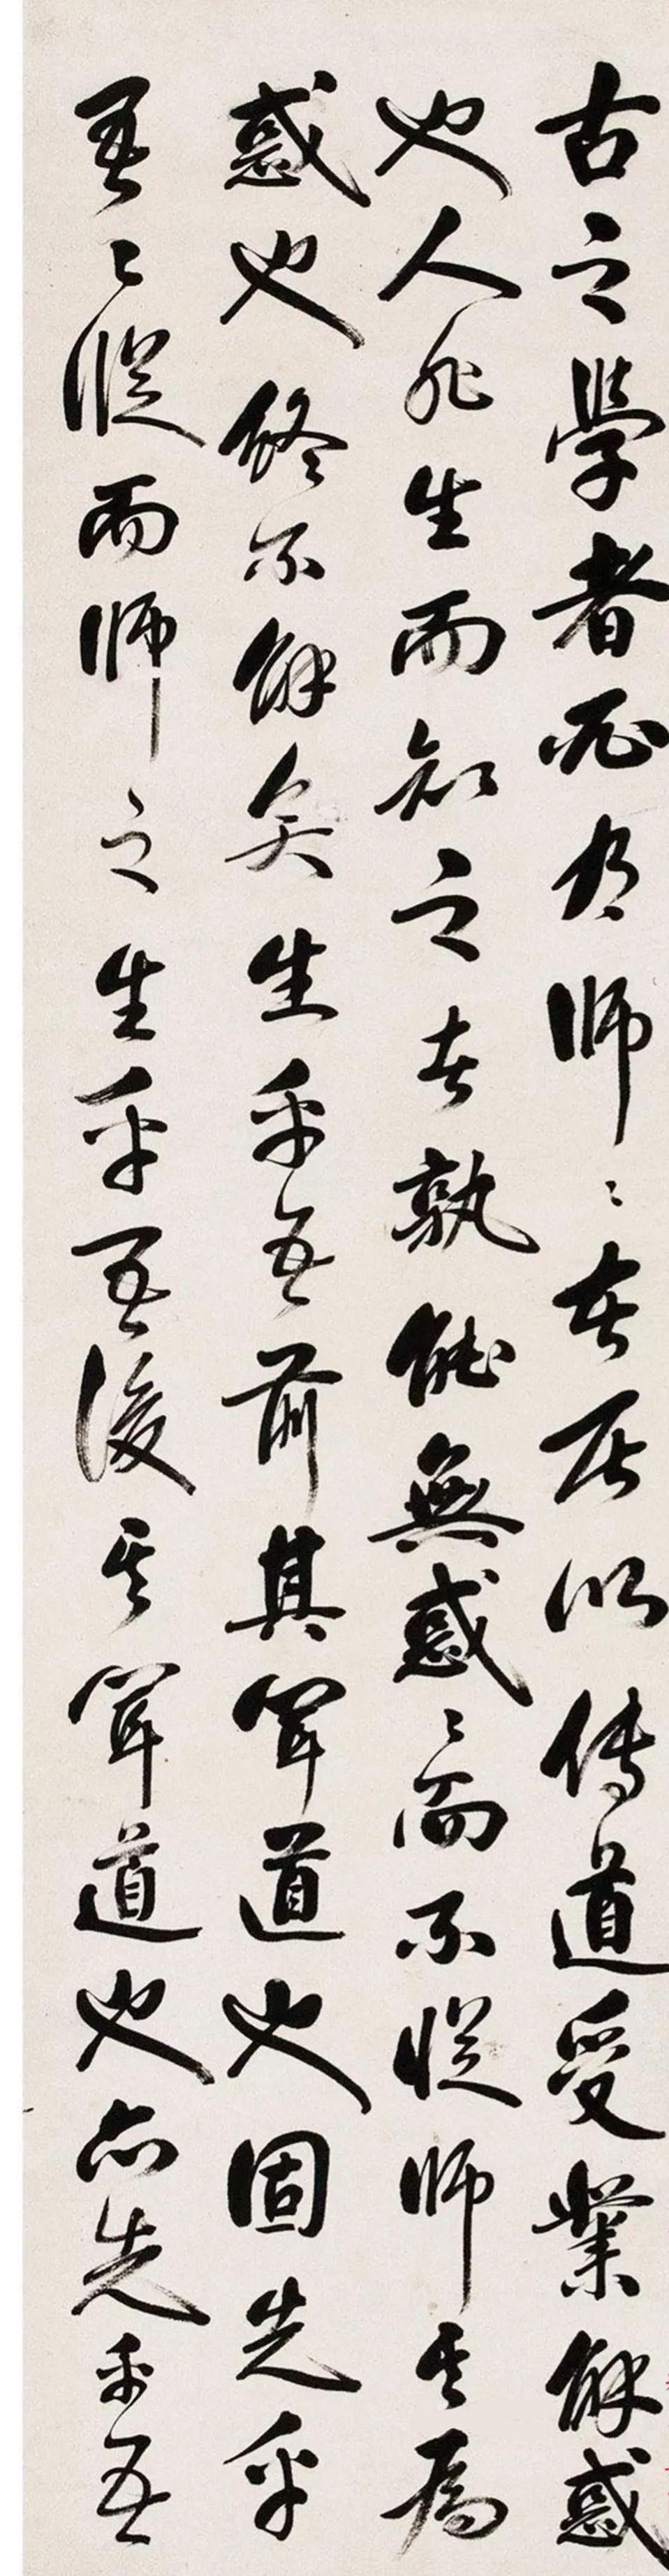 古之學者必有師〻者所以傳道受業解惑
也人非生而知之者孰能無惑〻而不從師其為
惑也終不解矣生乎吾前其聞道也固先乎
吾〻從而師之生乎吾後其聞道也亦先乎吾